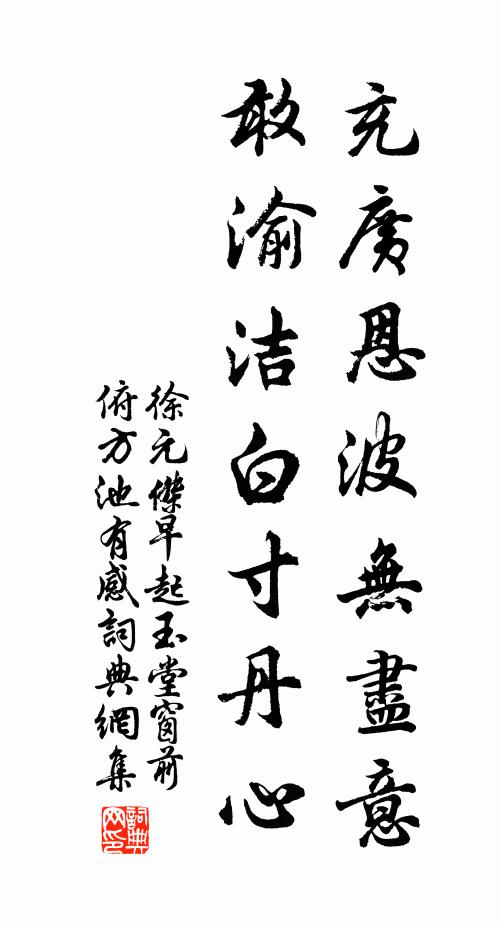 充廣恩波無盡意
敢渝洁白寸丹心
徐元傑早起玉堂窗前
俯方池有感詞典網集
詞典
网印